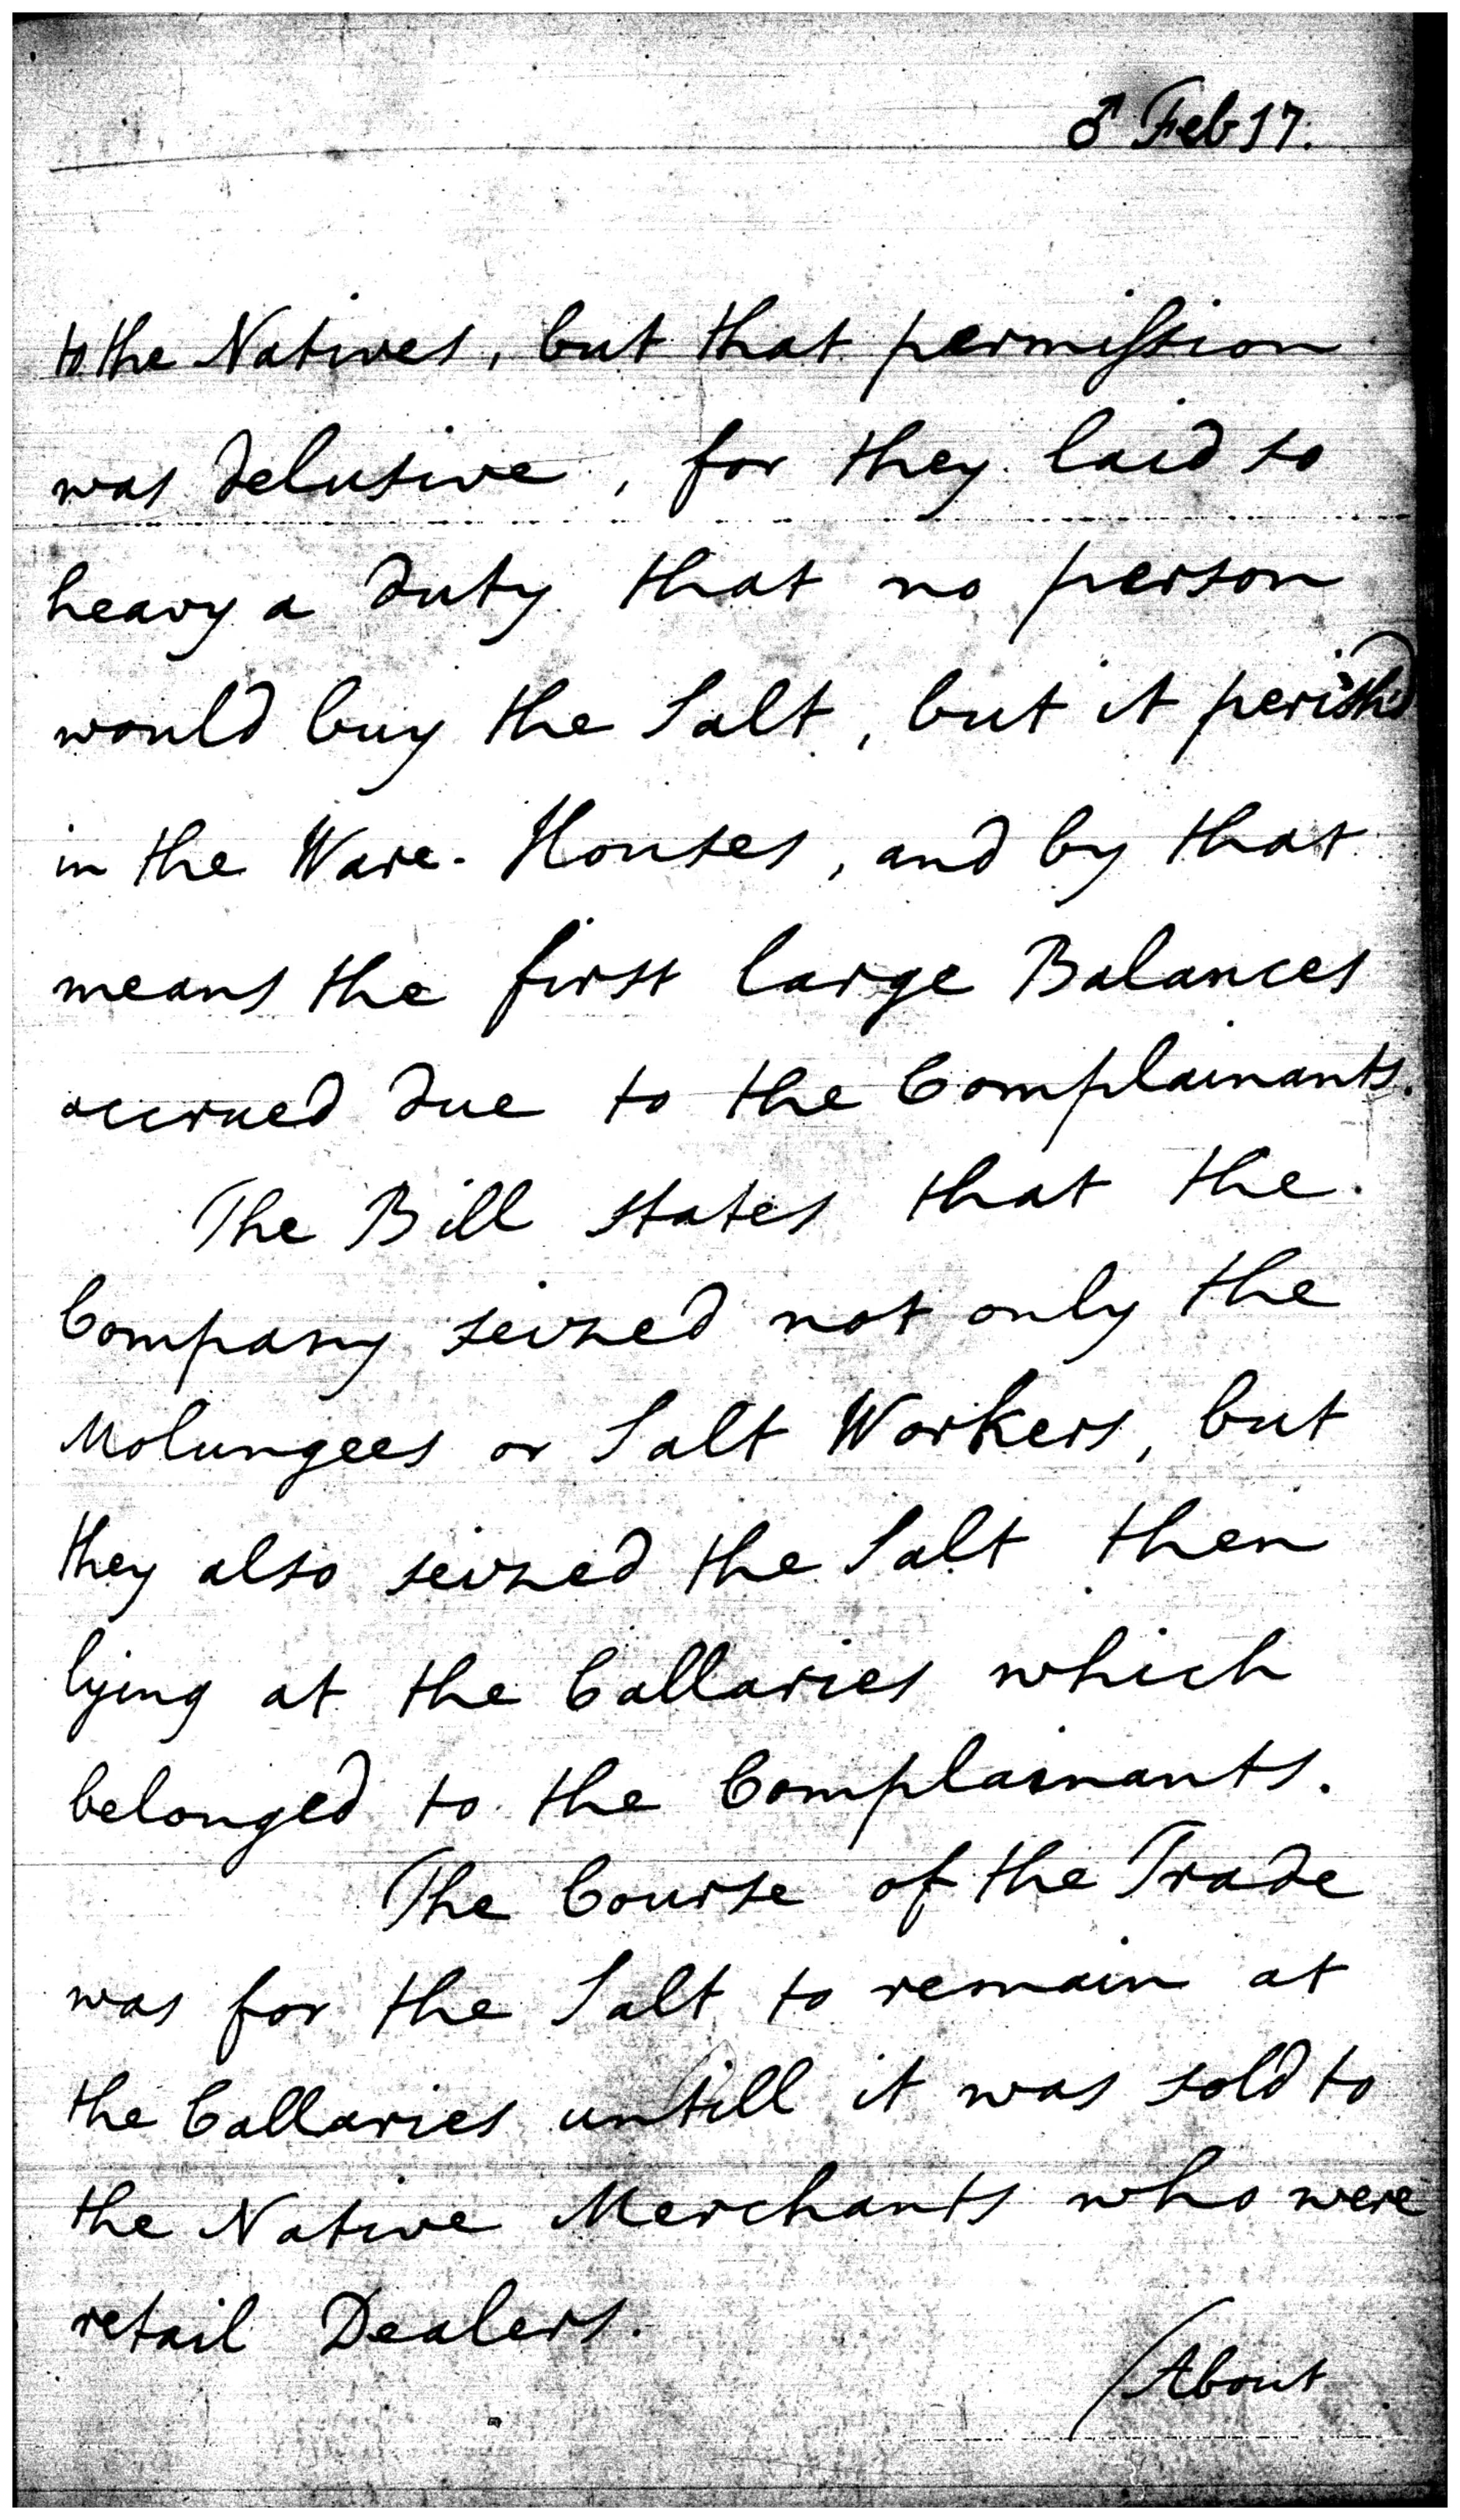 ♂ Feb 17.
to the Natives, but that permiſsion
was delusive, for they laid so
heavy a duty that no person
would buy the Salt, but it perish'd
in the Ware-Houses, and by that
means the first large Balances
accrued due to the Complainants.
The Bill states that the
Company seized not only the
Molungees or Salt Workers, but
they also seized the Salt then
lying at the Collaries which
belonged to the Complainants.
The Course of the Trade
was for the Salt to remain at
the Collaries untill it was sold to
the Native Merchants who were
retail Dealers.
/About